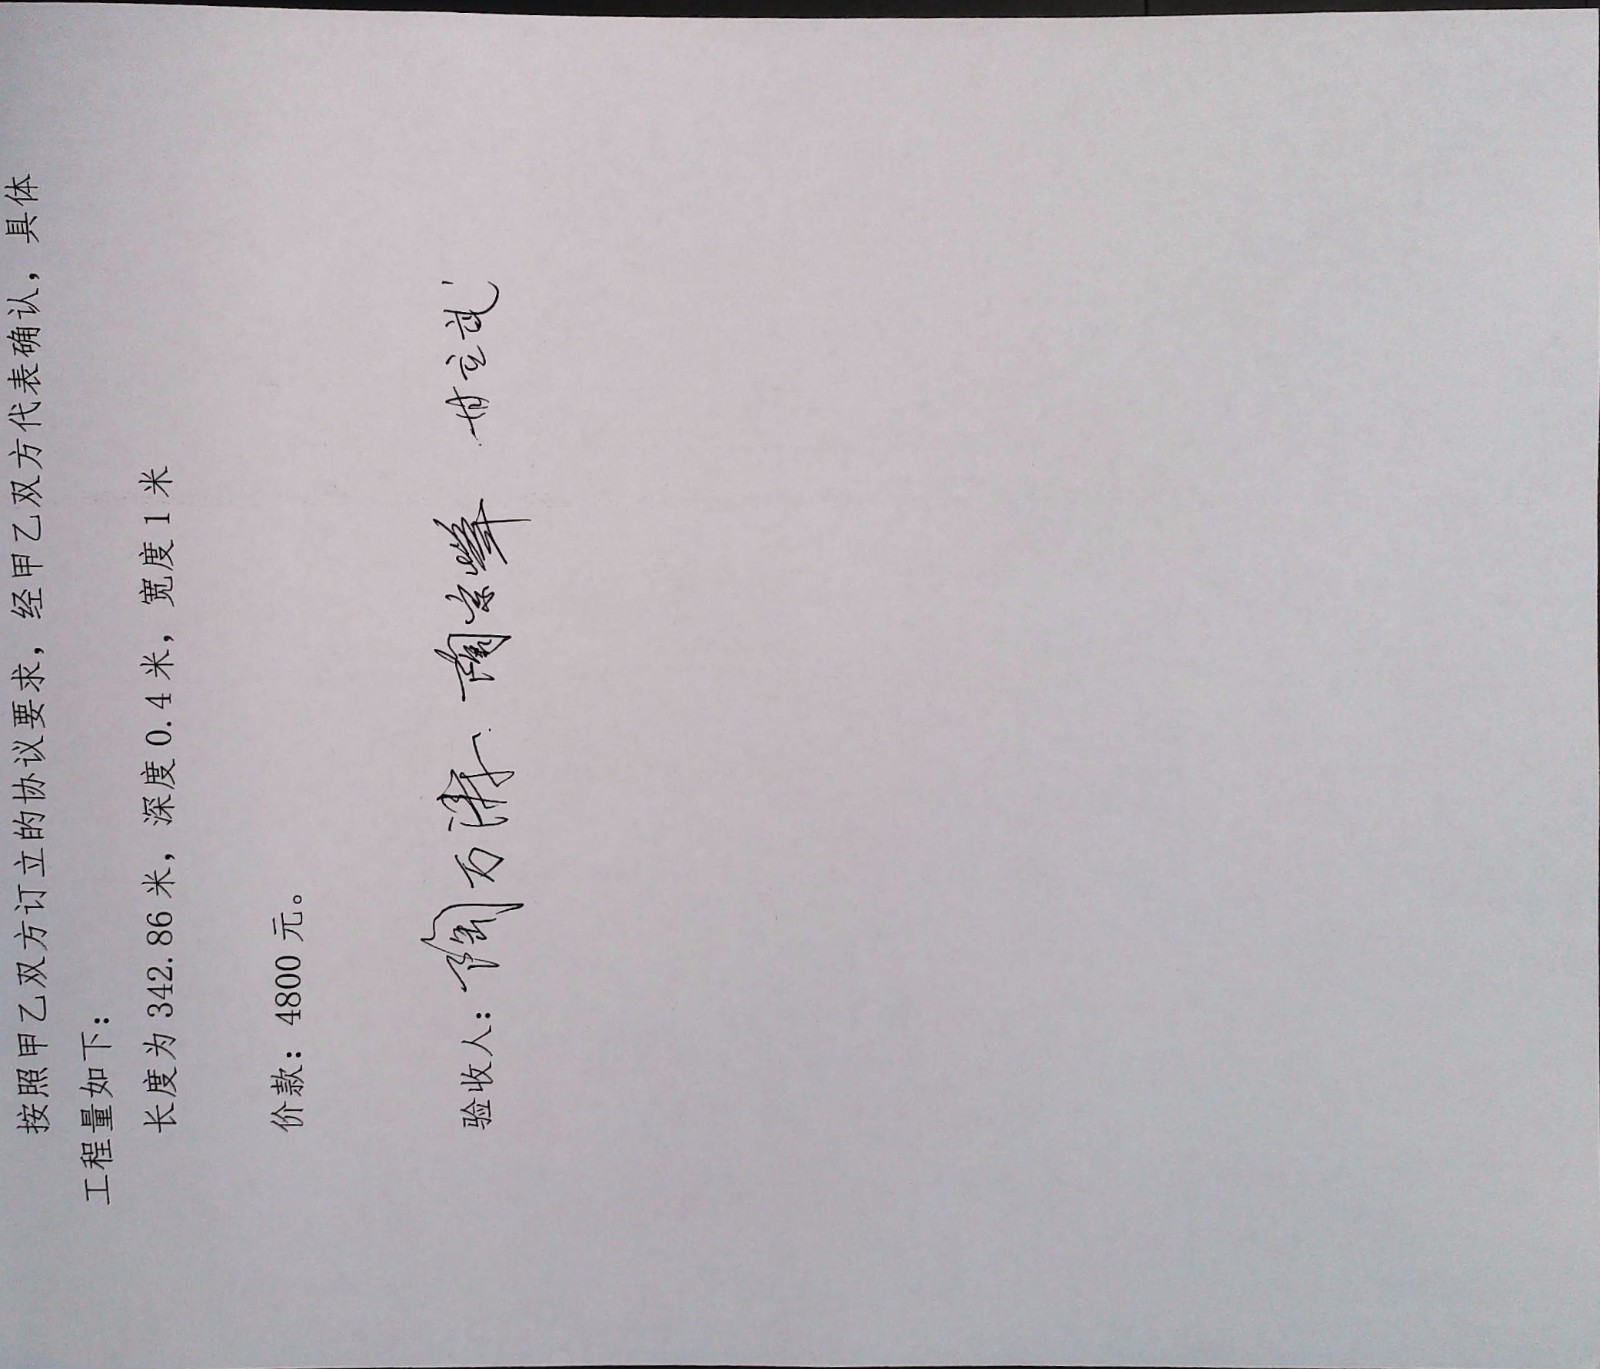 按照甲乙双方订立的协议要求，经甲乙双方代表确认，具体
工程量如下：
长度为 342.86 米，深度 0.4 米，宽度 1 米
价款：4800 元。
验收人：陶万